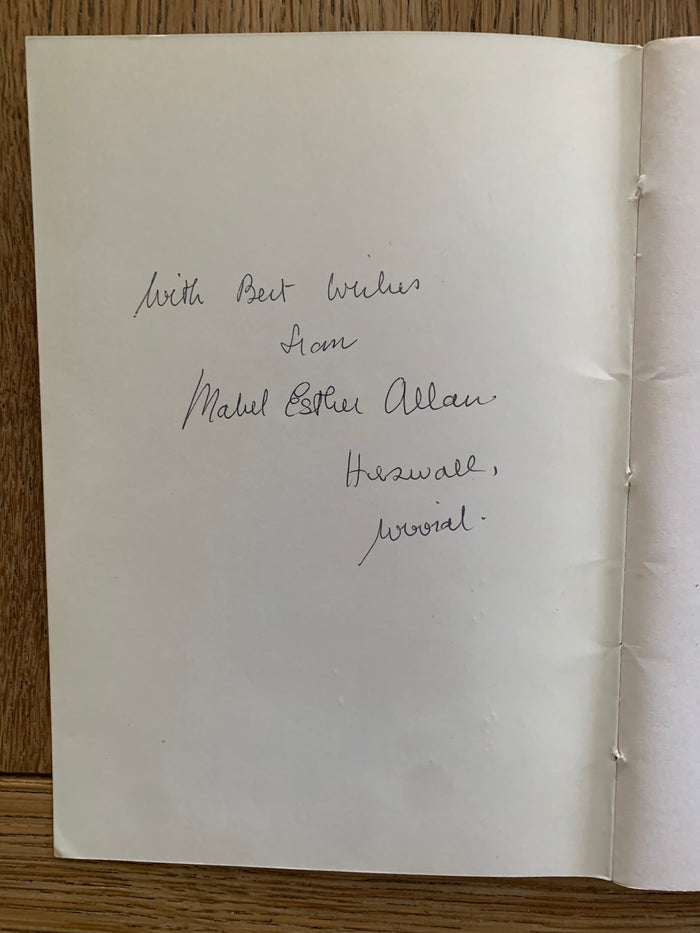 With Best Wishes
from
Mabel Esther Allan.
Heswall,
Wirral.